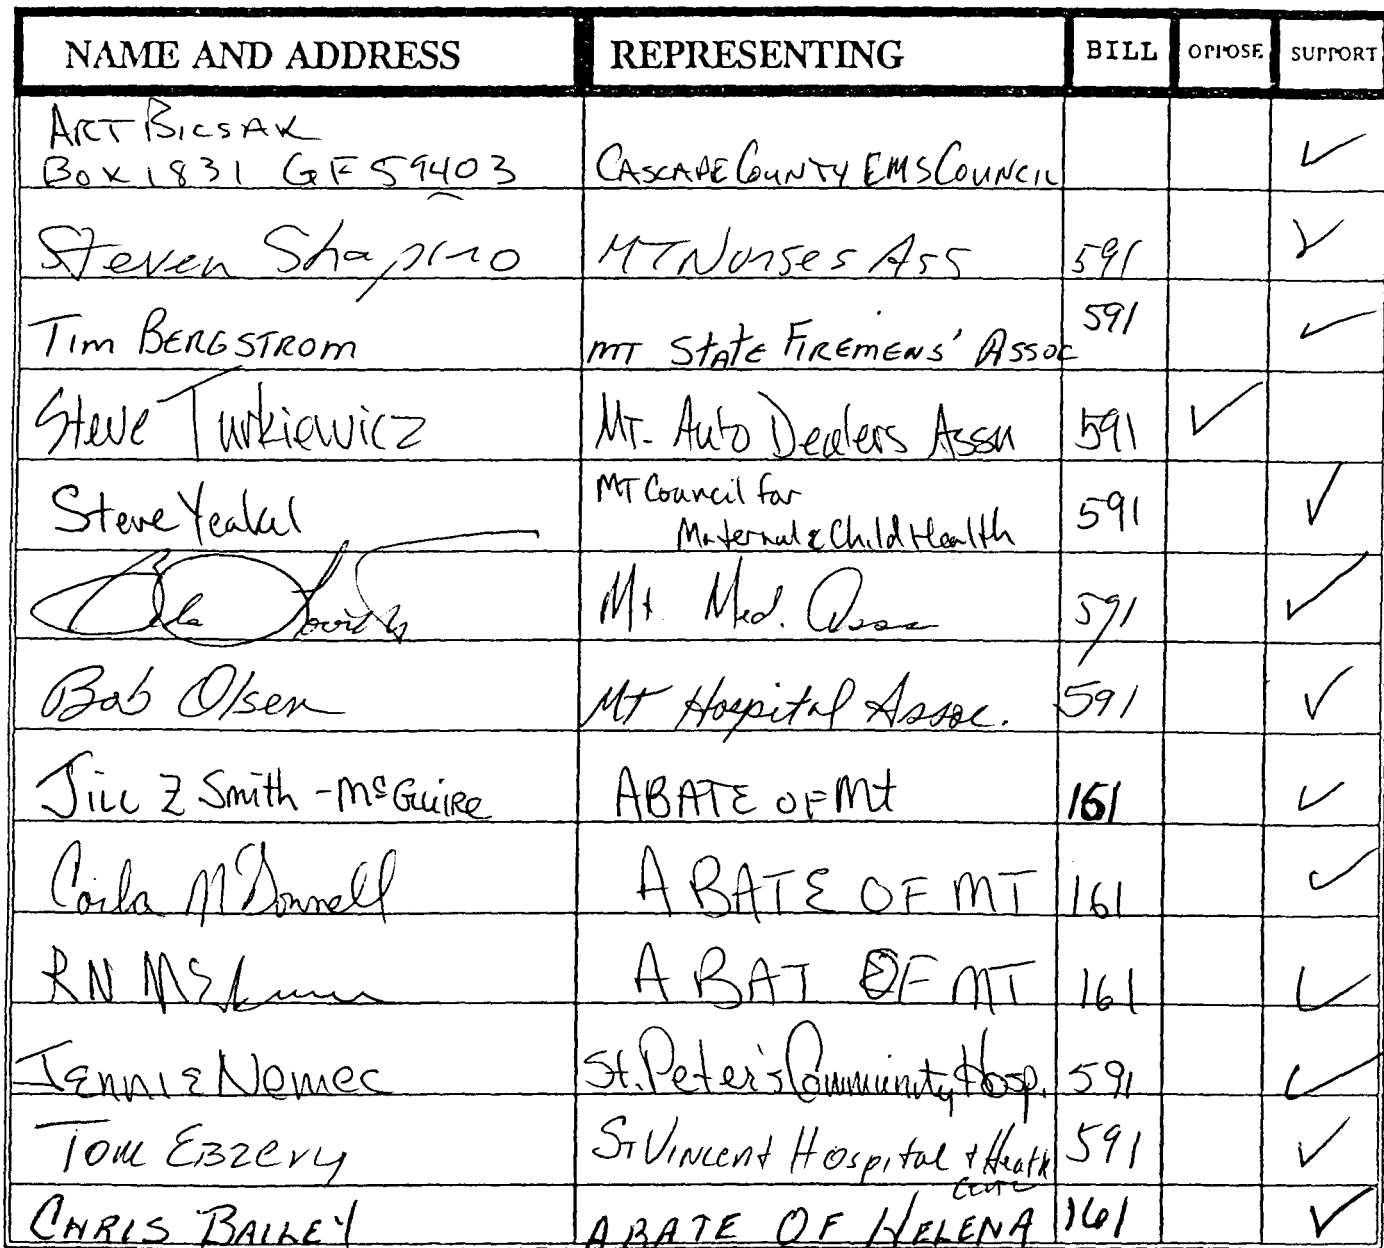 NAME AND ADDRESS REPRESENTING BILL OPPOSE SUPPORT
ART BICSAK
BOX 1831 GF 59403 CASCADE COUNTY EMS COUNCIL ✓
Steven Shapiro MT Nurses Ass 591 ✓
Tim BERGSTROM MT STATE FIREMENS' ASSOC 591 ✓
Steve Turkiewicz MT. Auto Dealers Assn 591 ✓
Steve Yeakel MT Council for
Maternal & Child Health 591 ✓
Mt. Med. Assn 591 ✓
Bob Olsen MT Hospital Assoc. 591 ✓
Jill Z Smith - McGuire ABATE OF Mt 161 ✓
Carla McDonnell ABATE OF MT 161 ✓
RN ABAT OF MT 161 ✓
Jennie Nemec St. Peter's Community Hosp. 591 ✓
Tom Ebzery St Vincent Hospital + Heath
Center 591 ✓
CHRIS BAILEY ABATE OF HELENA 161 ✓